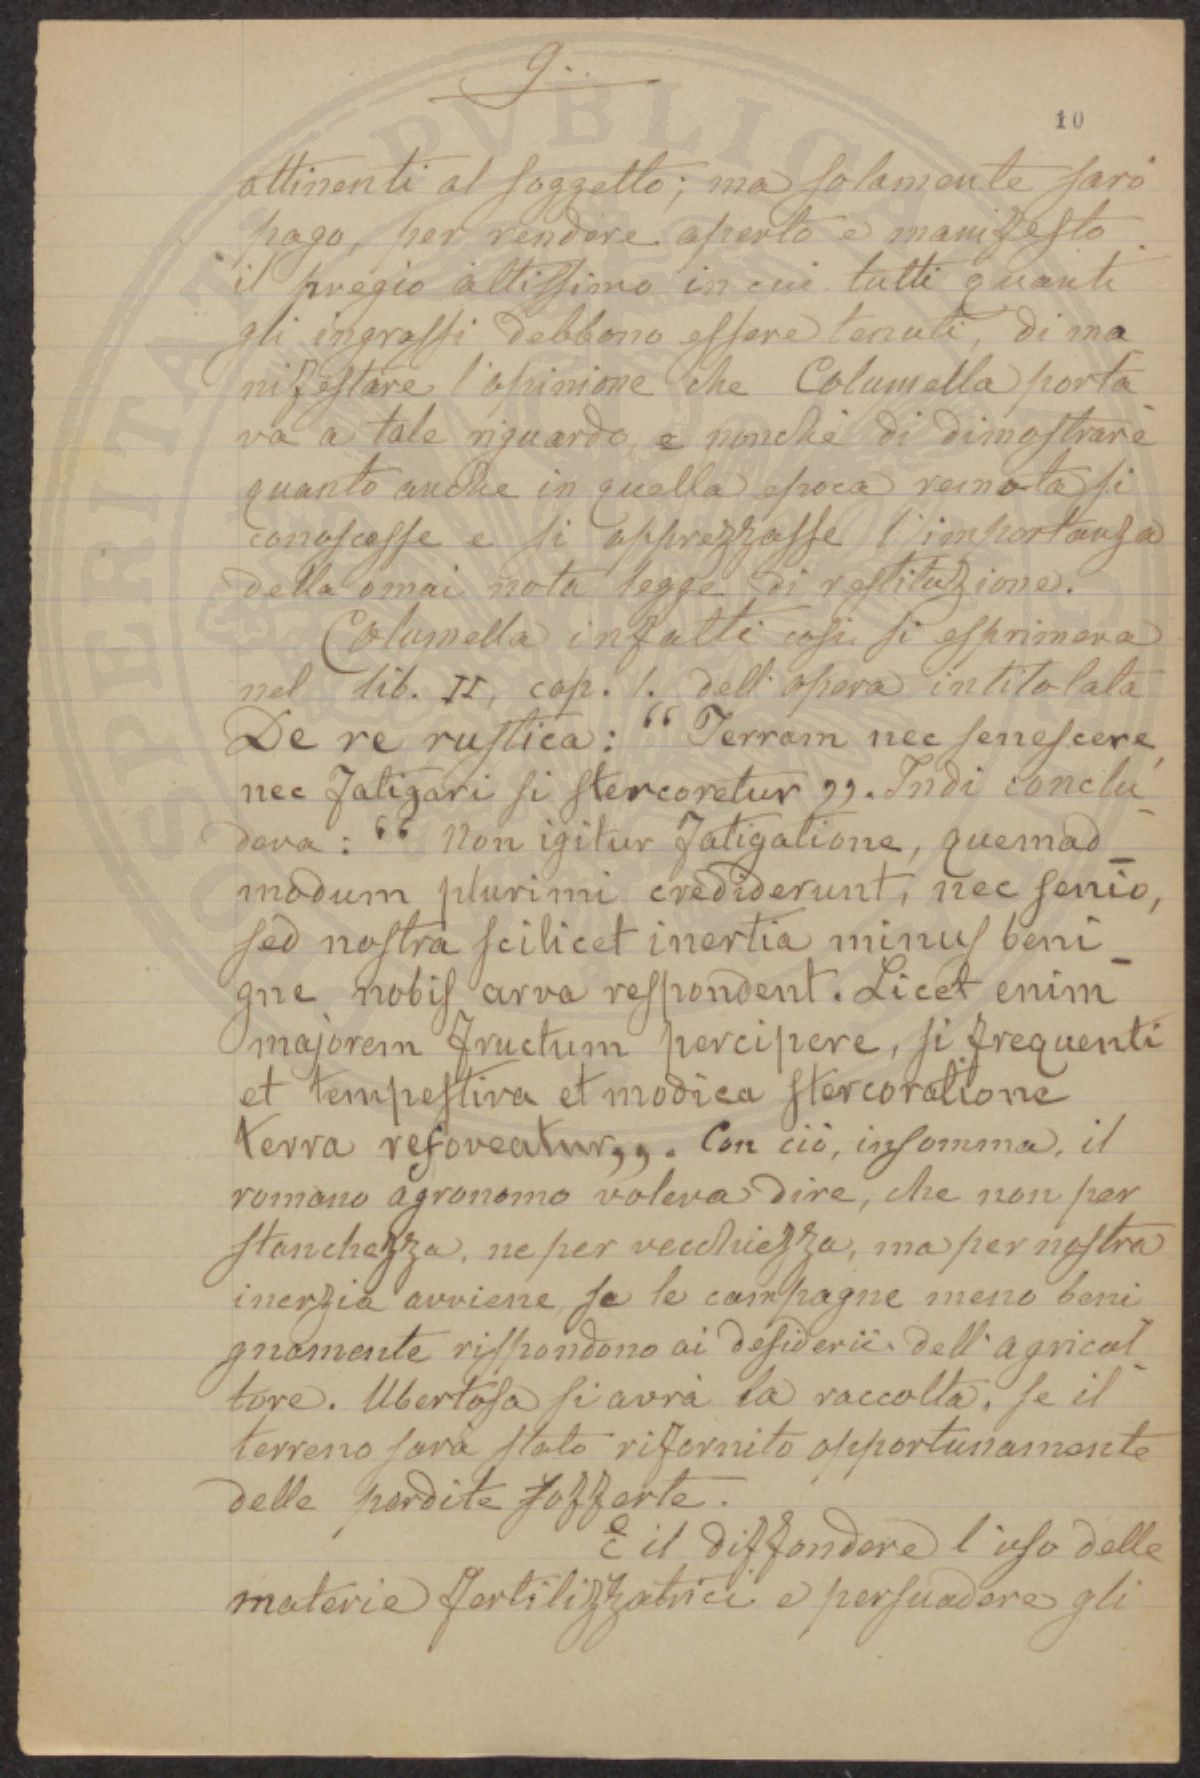 9.
10
attinenti al soggetto; ma solamente sarò
pago, per rendere aperto e manifesto
il pregio altissimo in cui tutti quanti
gli ingrassi debbono essere tenuti, di ma
nifestare l'opinione che Columella porta
va a tale riguardo, e nonchè di dimostrare
quanto anche in quella epoca remota si
conoscesse e si apprezzasse l'importanza
della omai nota legge di restituzione.
Columella infatti così si esprimeva
nel lib. II, cap. 1. dell'opera intitolata
De re rustica: “Terram nec senescere,
nec fatigari si stercoretur„. Indi conclu
deva: “Non igitur fatigatione, quemad_
modum plurimi crediderunt, nec senio,
sed nostra scilicet inertia minus beni_
gne nobis arva respondent. Licet enim
majorem fructum percipere, si frequenti
et tempestiva et modica stercoratione
terra refoveatur„. Con ciò, insomma, il
romano agronomo voleva dire, che non per
stanchezza, ne per vecchiezza, ma per nostra
inerzia avviene se le campagne meno beni
gnamente rispondono ai desiderii dell'agricol_
tore. Ubertosa si avrà la raccolta, se il
terreno sarà stato rifornito opportunamente
delle perdite sofferte.
È il diffondere l'uso delle
materie fertilizzatrici e persuadere gli
PVBLICA
PERITAT